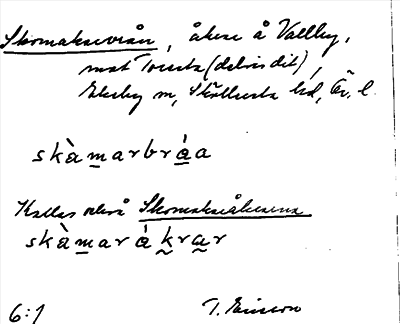 Skomakarvrån, åker å Vallby,
mot Torsta (delvis dit),
Ekeby m, Sköllersta hd, Ör. l.
skàmarbráa
Kallas också Skomakaråkrarna
skàmarákrar
6:1 T. Ericson